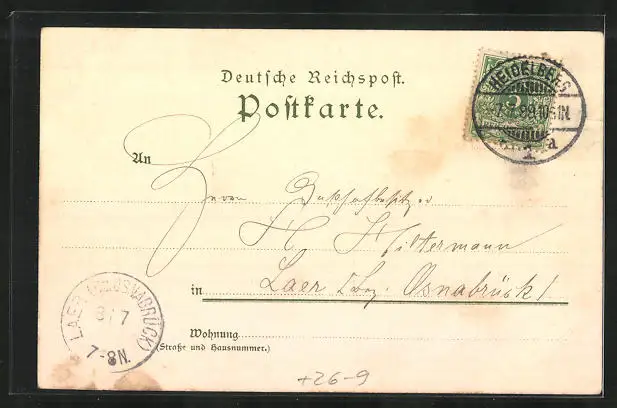 Deutsche Reichspost.
Postkarte.
HEIDELBERG
7. 7. 99. 10-11N.
1 a
An
Herrn
H Hiltermann
in Laer (Bez. Osnabrück)
LAER (BZ. OSNABRÜCK)
8/7
7-8N.
Wohnung
(Straße und Hausnummer.)
+26-9